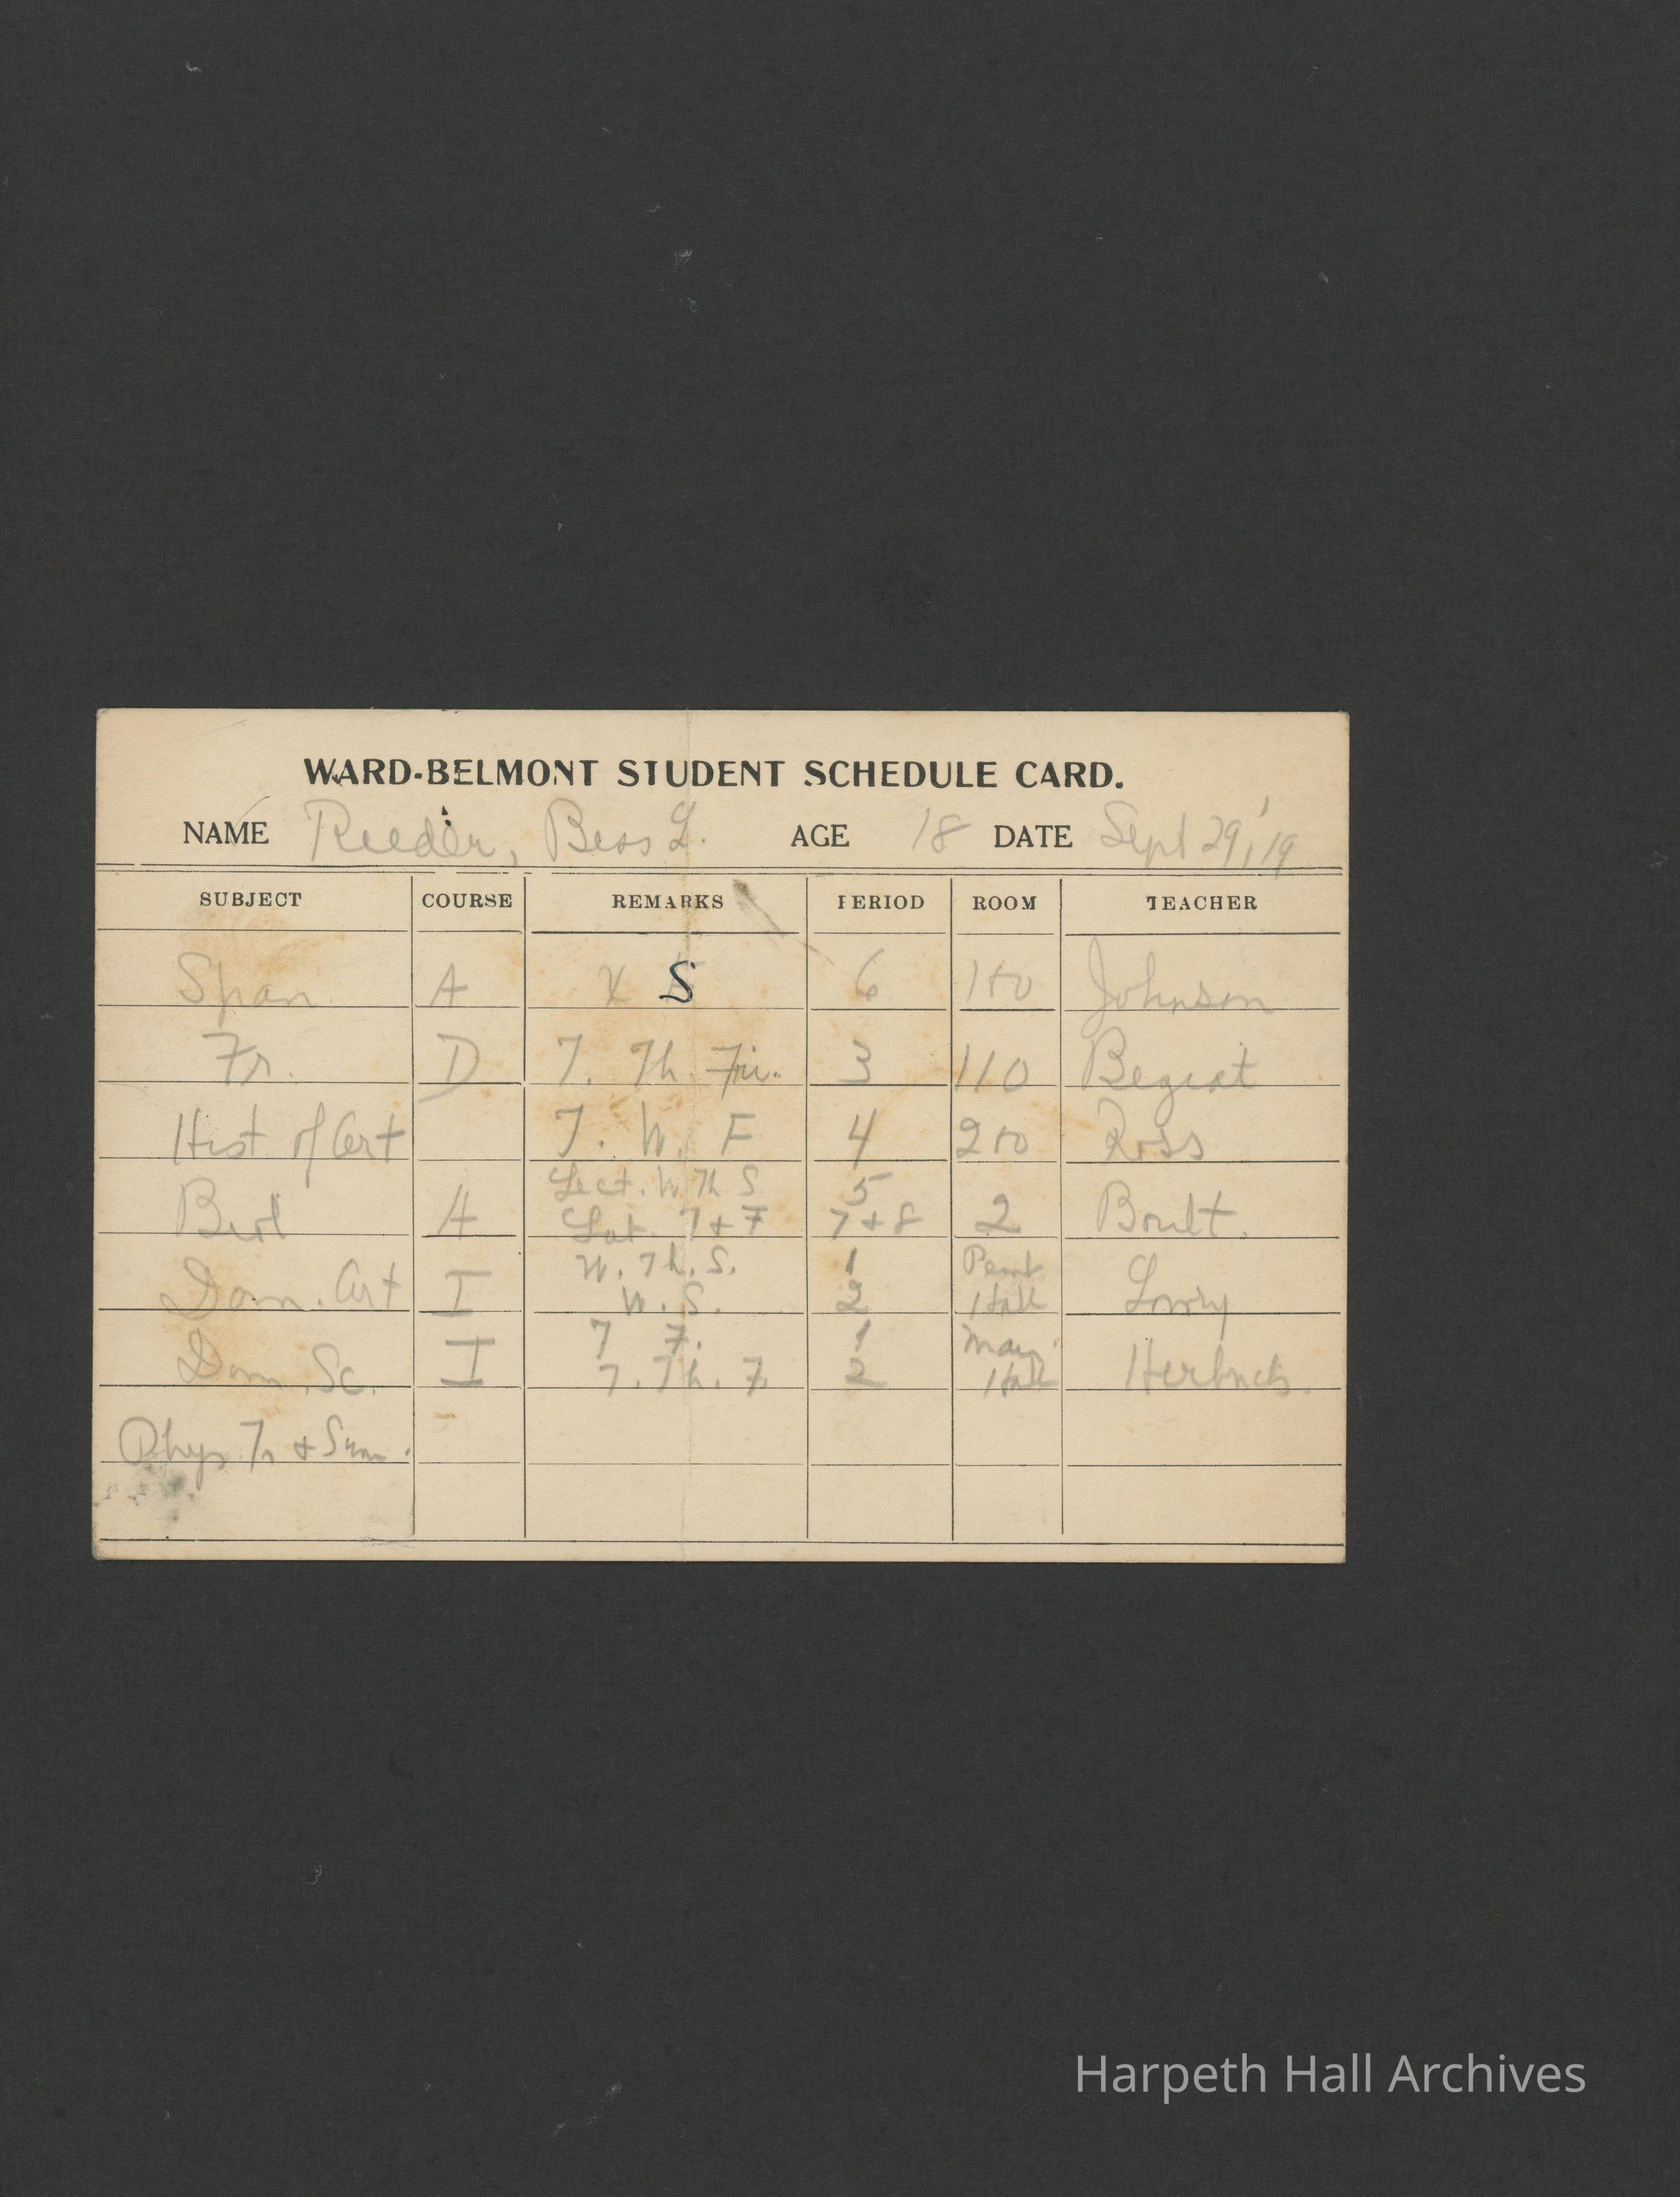 WARD-BELMONT STUDENT SCHEDULE CARD.
NAME Reeder, Bess L. AGE 18 DATE Sept 29, '19
SUBJECT COURSE REMARKS PERIOD ROOM TEACHER
Span A X S 6 100 Johnson
Fr. D T. Th. Fri. 3 110 Begeat
Hist of Art T. W. F 4 200 Ross
Lect. W Th S 5
Biol A Lab. T + F 7 + 8 2 Boult.
W. Th. S. 1 Pem
Dom. Art I W. S. 2 Hall Lowry
T F. 1 Main
Dom. Sc. I T. Th. F. 2 Hall
Phys Tr + Swim.
Harpeth Hall Archives